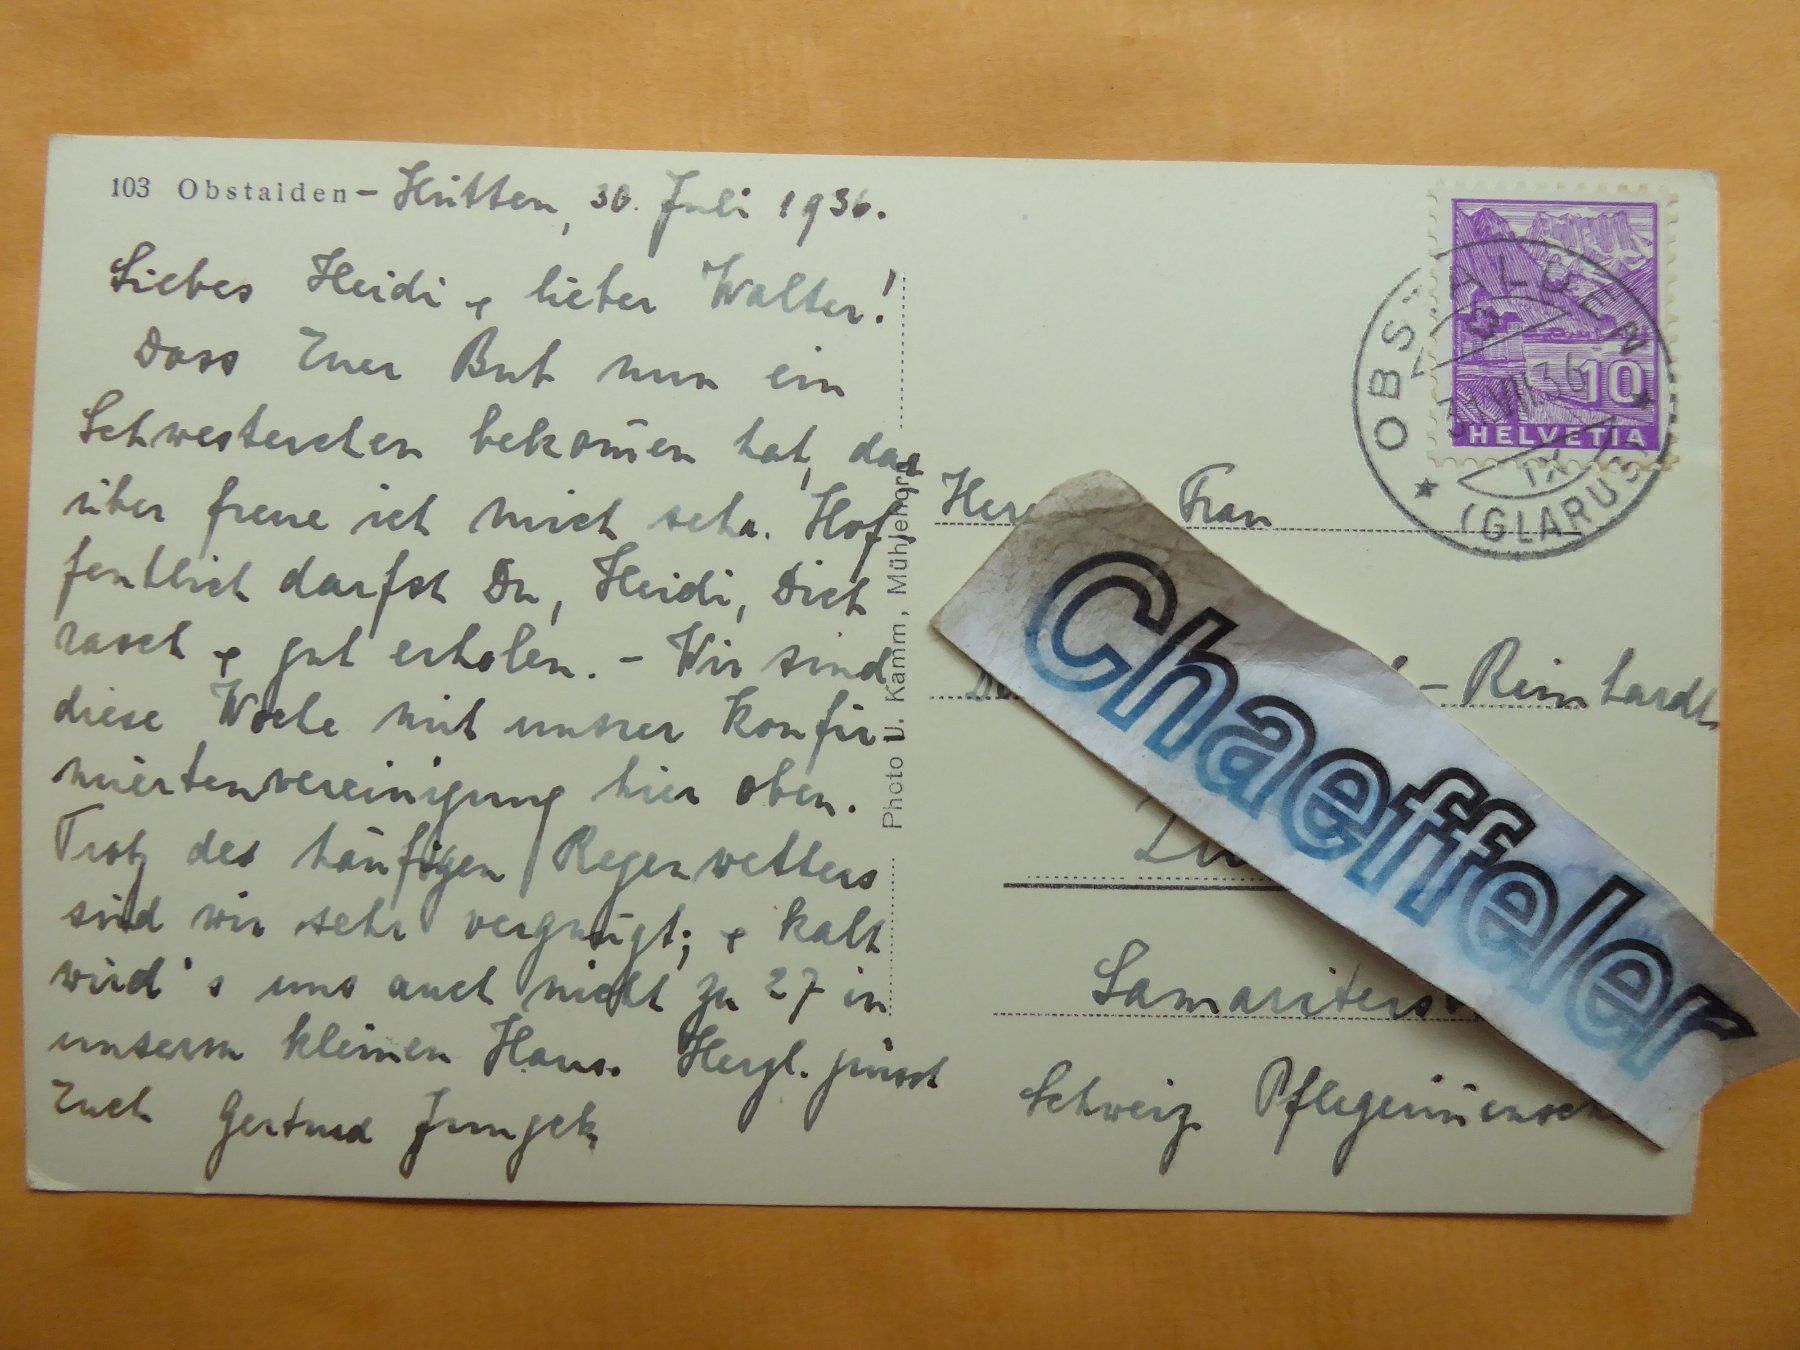 103 Obstalden - Hütten, 30. Juli 1936.
Liebes Heidi & lieber Walter!
Dass Euer Bub nun ein
Schwesterchen bekom̅en hat, dar
über freue ich mich sehr. Hof
fentlich darfst Du, Heidi, Dich
rasch & gut erholen. - Wir sind
diese Woche mit unsrer Konfir
miertenvereinigung hier oben.
Trotz des häufigen Regenwetters
sind wir sehr vergnügt; & kalt
wird's uns auch nicht zu 27 in
unserm kleinen Haus. Herzl. grüsst
Euch Gertrud
Photo U. Kamm, Mühlehorn
OBSTALDEN
31.VII.36
(GLARUS)
10
HELVETIA
Frau
- Reinhardt
Samariterst
Schweiz. Pflegerin̅ensch
Chaeffeler